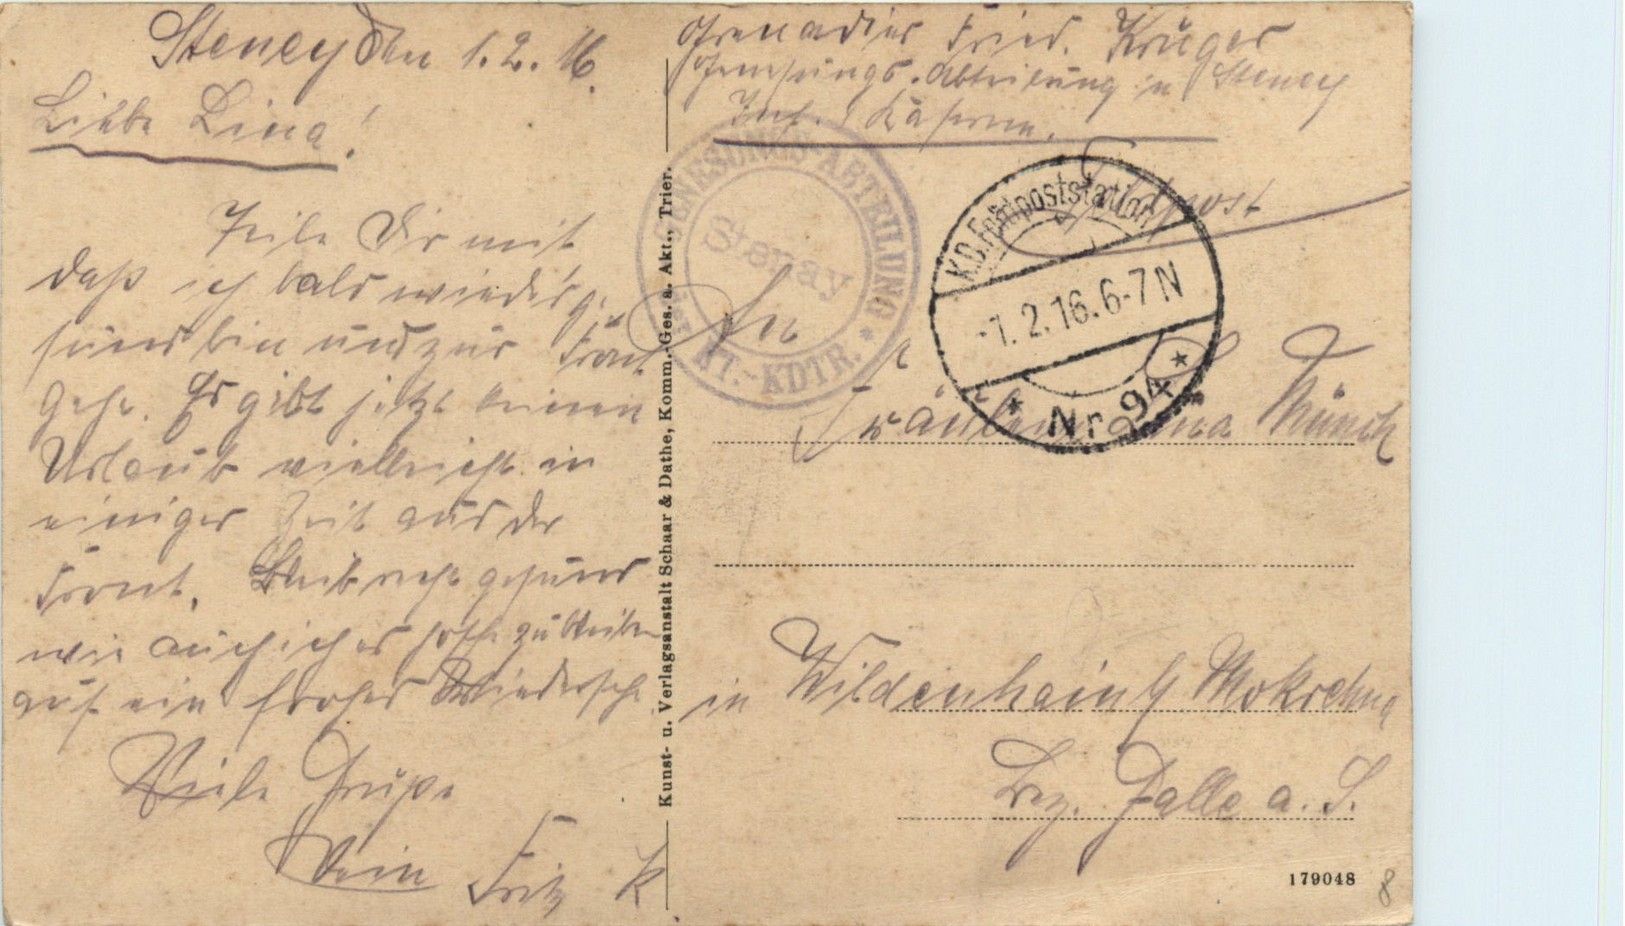 Steney den 1.2.16.
Liebe Lina!
Teile Dir mit
daß ich bald wieder ge
sund bin und zur Front
gehe. Es gibt jetzt keinen
Urlaub vielleicht in
einiger Zeit aus der
Front. Bleib recht gesund
wie auch ich es hoffe zu bleiben
auf ein frohes Wiedersehn
Viele Grüße
Dein Fritz K
Kunst- u. Verlagsanstalt Schaar & Dathe, Komm.-Ges. a. Akt., Trier.
Grenadier Fried. Krüger
Genesungs-Abteilung in Steney
Inf. Kaserne.
Feldpost
GENESUNGS-ABTEILUNG
Stenay
KT.-KDTR.
K.D. Feldpoststation
-1.2.16.6-7N
* Nr 94 *
An
Fräulein Lina Münch
in Wildenhain b Mokrehna
Bez. Halle a. S.
179048
8